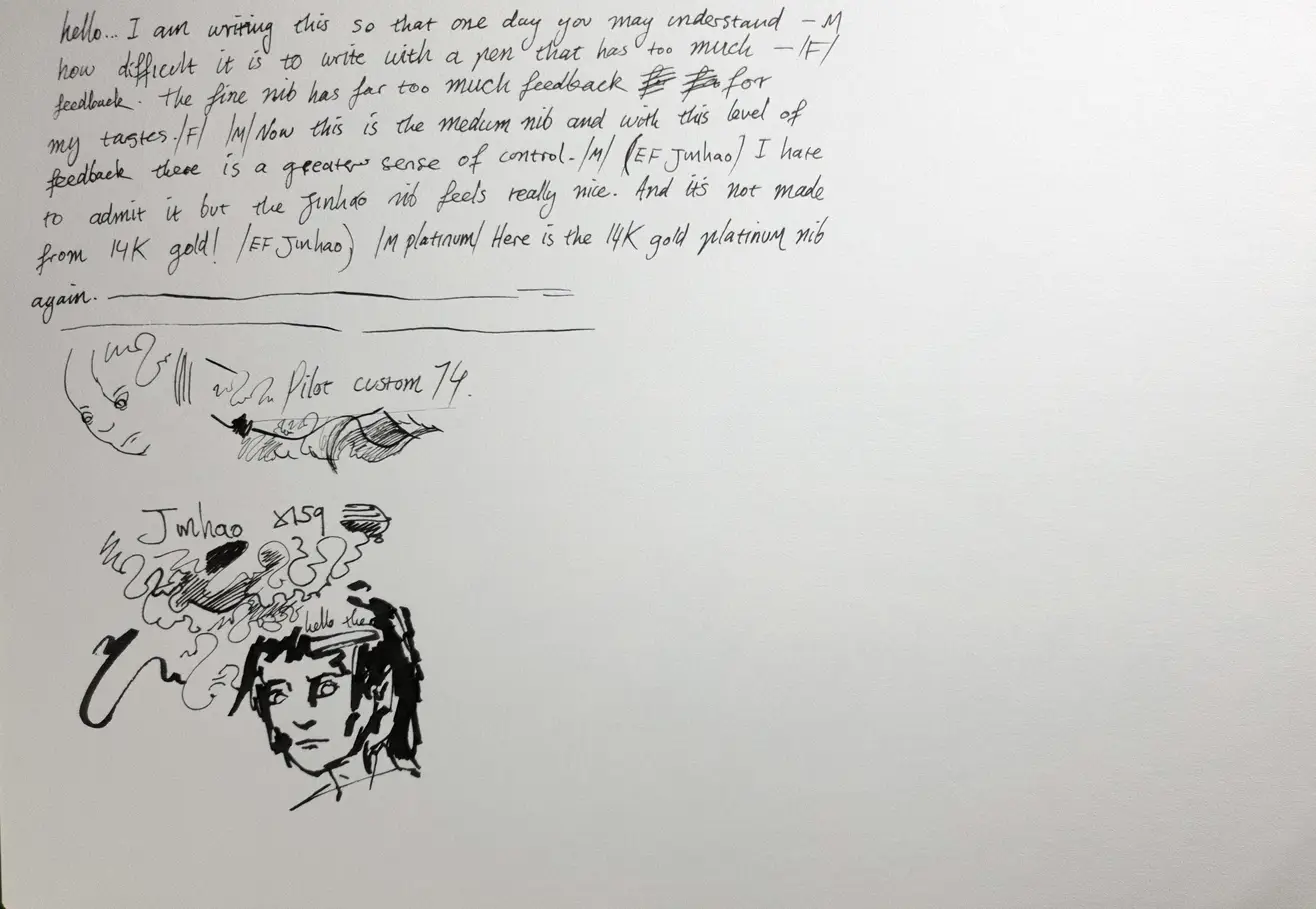 hello... I am writing this so that one day you may understand – M
how difficult it is to write with a pen that has too much – /F/
feedback. The fine nib has far too much feedback for
my tastes. /F/ /M/ Now this is the medum nib and with this level of
feedback there is a greater sense of control. /M/ (EF Jinhao) I hate
to admit it but the Jinhao nib feels really nice. And it's not made
from 14K gold! /EF Jinhao) /M platinum/ Here is the 14K gold platinum nib
again.
Pilot custom 74.
Jinhao X159
hello the